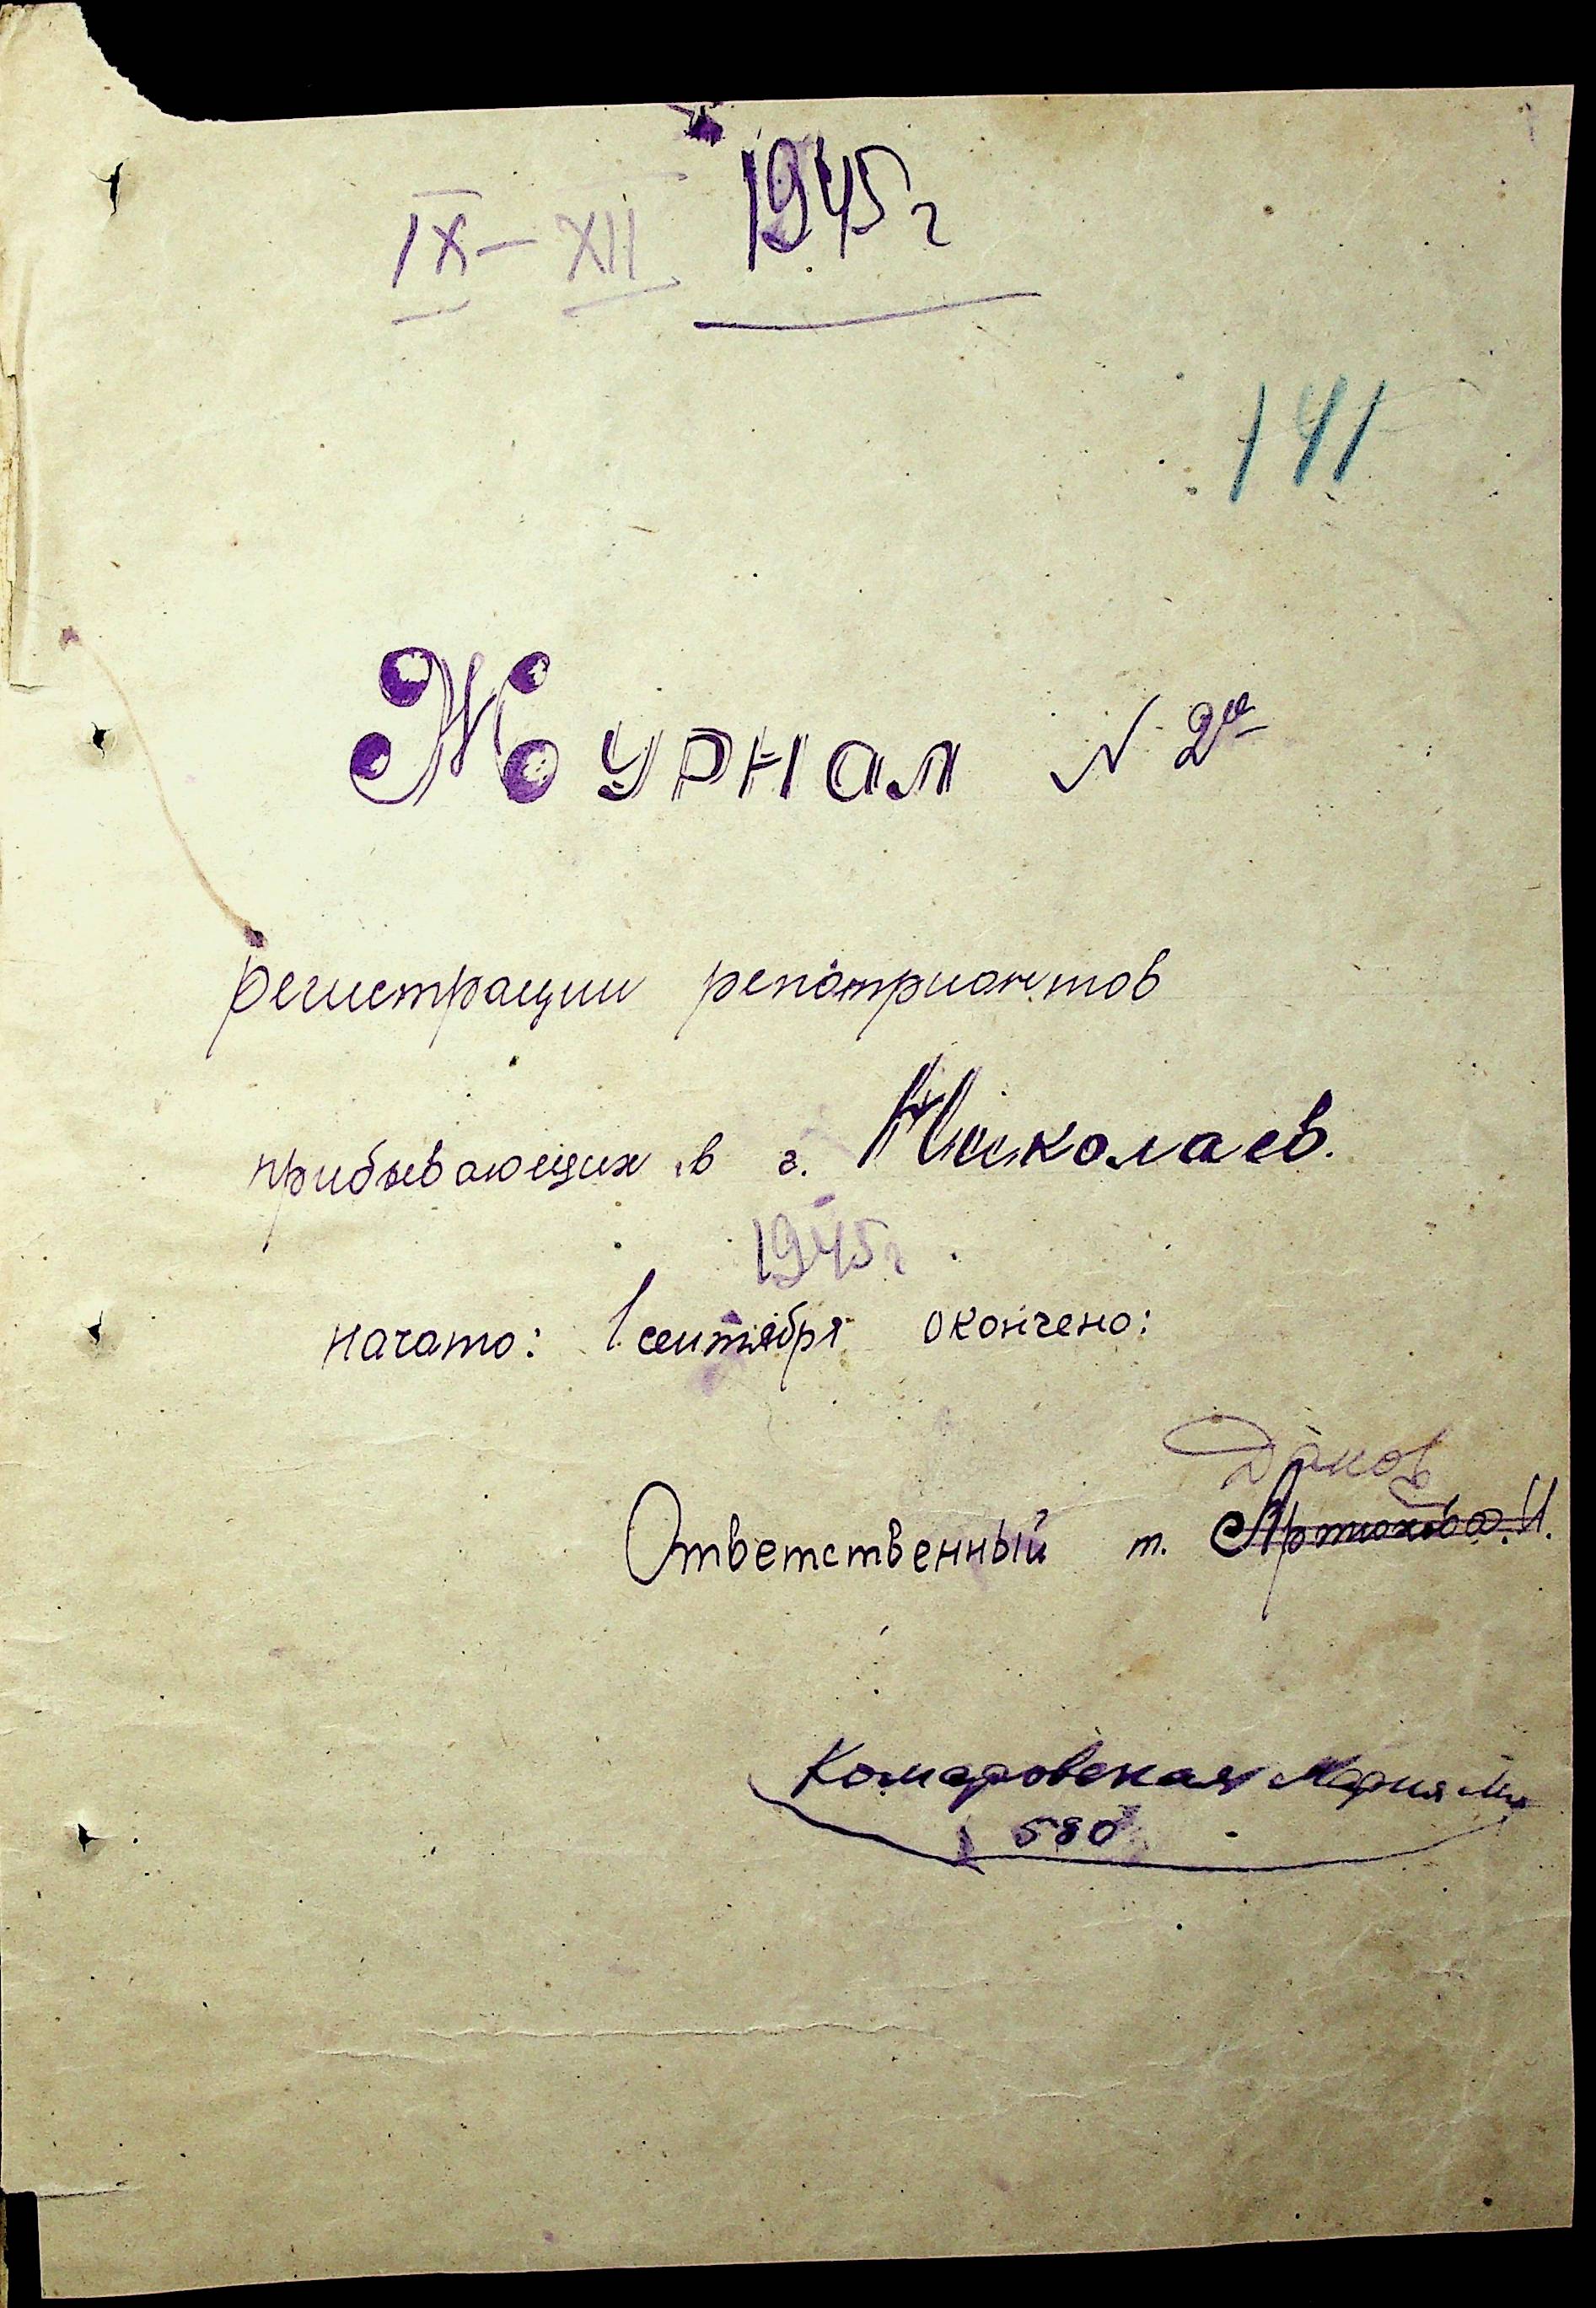 IX – XII 1945 г
141
Журнал N 2й
регистрации репатриантов
прибывающих в г. Николаев.
1945 г
начато: 1 сентября окончено:
Ответственный т. Артюхова И.
Комаровская Мария
580